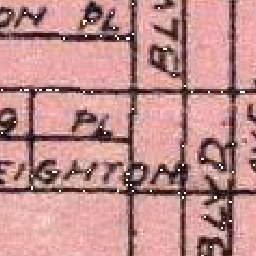 ON PL
BLV
PL
EIGHTON
BLVD